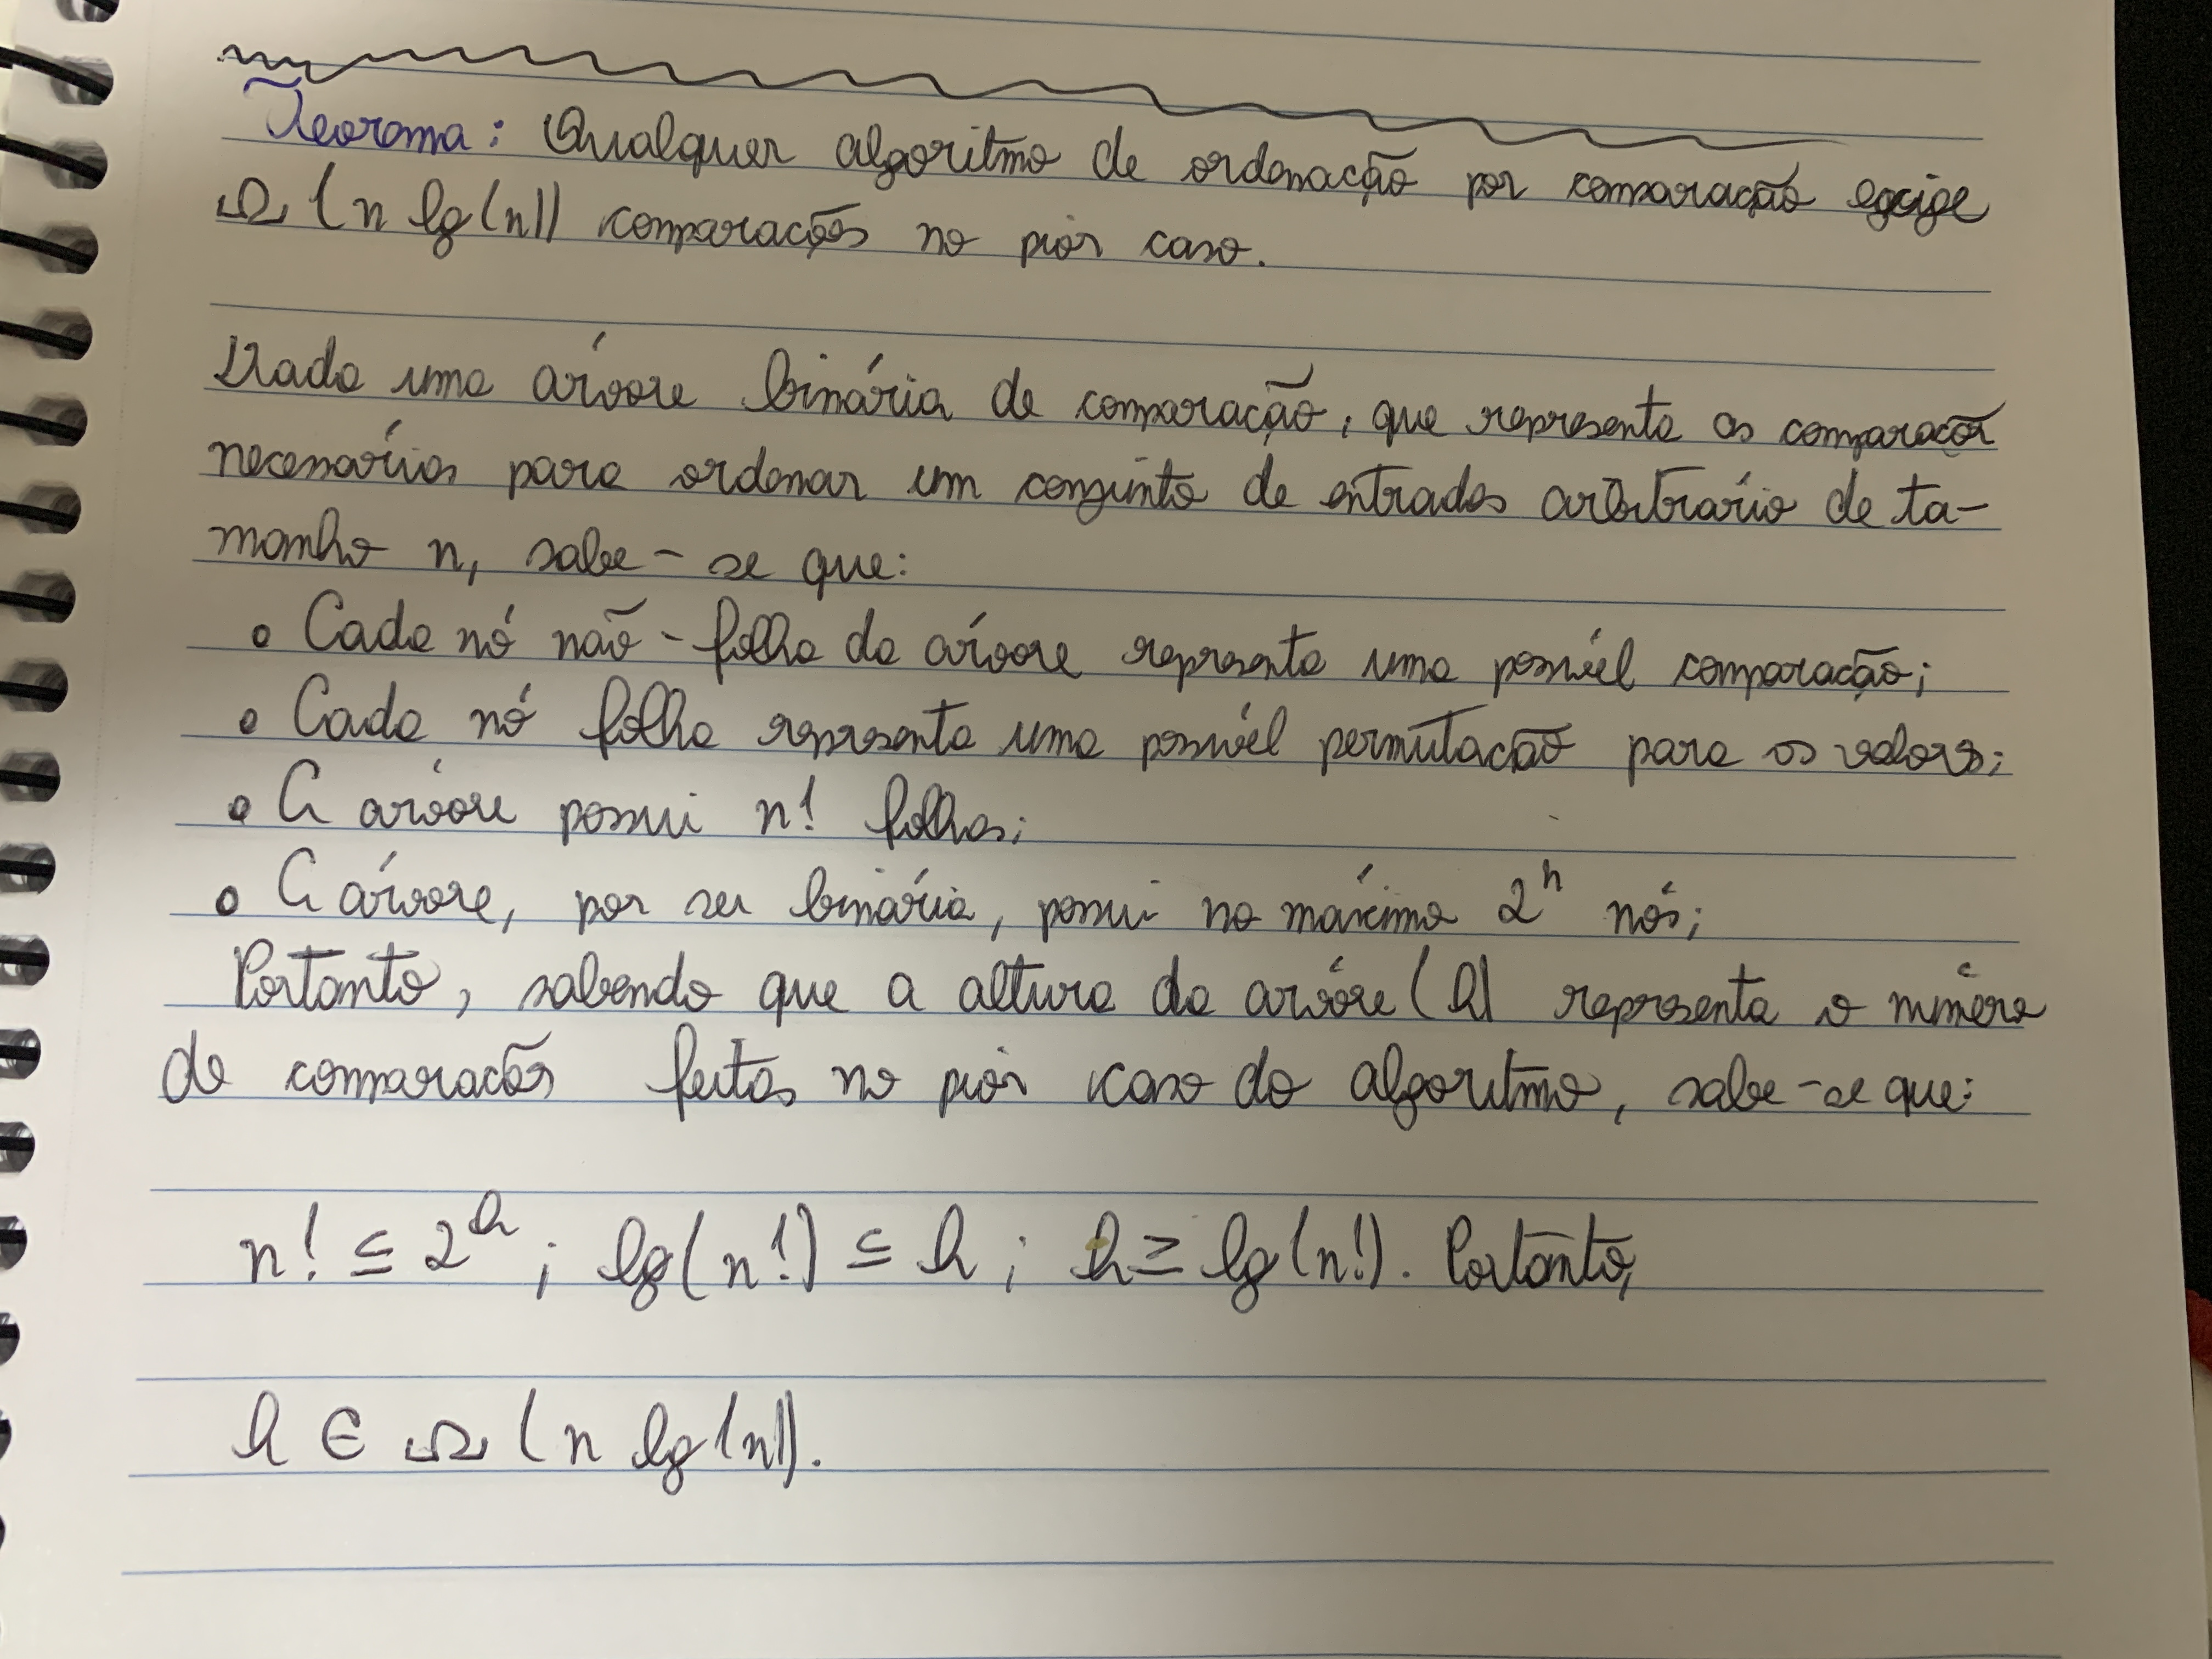 Teorema: Qualquer algoritmo de ordenação por comparação exige
Ω (n lg(n)) comparações no piór caso.
Dada uma árvore binária de comparação, que representa as comparaçõs
necessárias para ordenar um conjunto de entradas arbitrário de ta-
manho n, sabe-se que:
• Cada nó não-folha da árvore representa uma possível comparação;
• Cada nó folha representa uma possível permutação para os valores;
• A árvore possui n! folhas;
• A árvore, por ser binária, possui no máximo 2^n nós;
Portanto, sabendo que a altura da árvore (h) representa o número
de comparações feitas no piór caso do algoritmo, sabe-se que:
n! ≤ 2^h ; lg(n!) ≤ h ; h ≥ lg(n!). Portanto,
h ∈ Ω (n lg(n)).